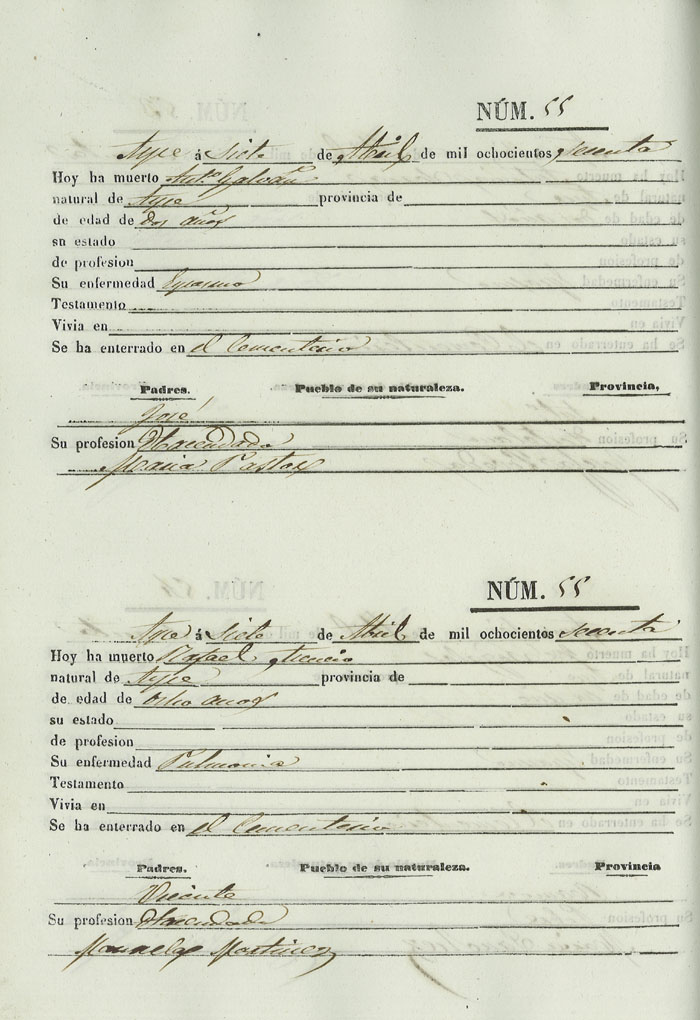 NÚM. 55
Aspe á siete de Abril de mil ochocientos sesenta
Hoy ha muerto Antº Galván
natural de Aspe provincia de
de edad de dos años
sn estado
de profesion
Su enfermedad Espasmo
Testamento
Vivia en
Se ha enterrado en el Cementerio
Padres. Pueblo de su naturaleza. Provincia,
José
Su profesion Hacendado
Maria Pastor
NÚM. 55
Aspe á siete de Abril de mil ochocientos sesenta
Hoy ha muerto Rafael
natural de Aspe provincia de
de edad de ocho años
su estado
de profesion
Su enfermedad Pulmonia
Testamento
Vivia en
Se ha enterrado en el Cementerio
Padres. Pueblo de su naturaleza. Provincia
Vicente
Su profesion Hacendado
Manuela Martinez